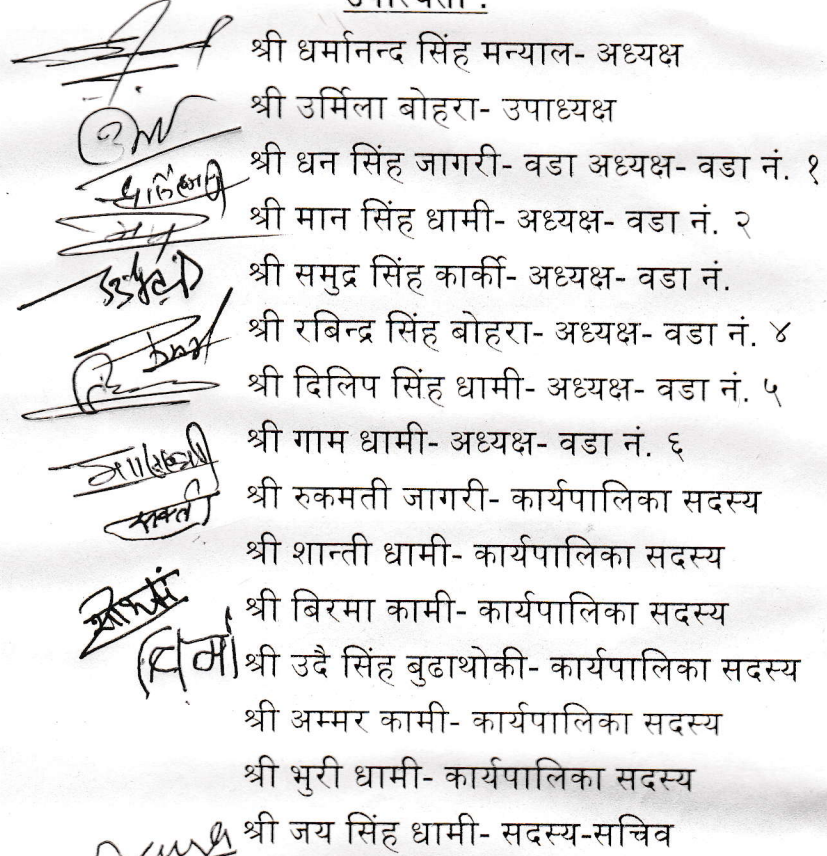 उपस्थिती :
श्री धर्मानन्द सिंह मन्याल- अध्यक्ष
श्री उर्मिला बोहरा- उपाध्यक्ष
श्री धन सिंह जागरी- वडा अध्यक्ष- वडा नं. १
श्री मान सिंह धामी- अध्यक्ष- वडा नं. २
श्री समुद्र सिंह कार्की- अध्यक्ष- वडा नं.
श्री रबिन्द्र सिंह बोहरा- अध्यक्ष- वडा नं. ४
श्री दिलिप सिंह धामी- अध्यक्ष- वडा नं. ५
श्री गाम धामी- अध्यक्ष- वडा नं. ६
श्री रुकमती जागरी- कार्यपालिका सदस्य
श्री शान्ती धामी- कार्यपालिका सदस्य
श्री बिरमा कामी- कार्यपालिका सदस्य
श्री उदै सिंह बुढाथोकी- कार्यपालिका सदस्य
श्री अम्मर कामी- कार्यपालिका सदस्य
श्री भुरी धामी- कार्यपालिका सदस्य
श्री जय सिंह धामी- सदस्य-सचिव